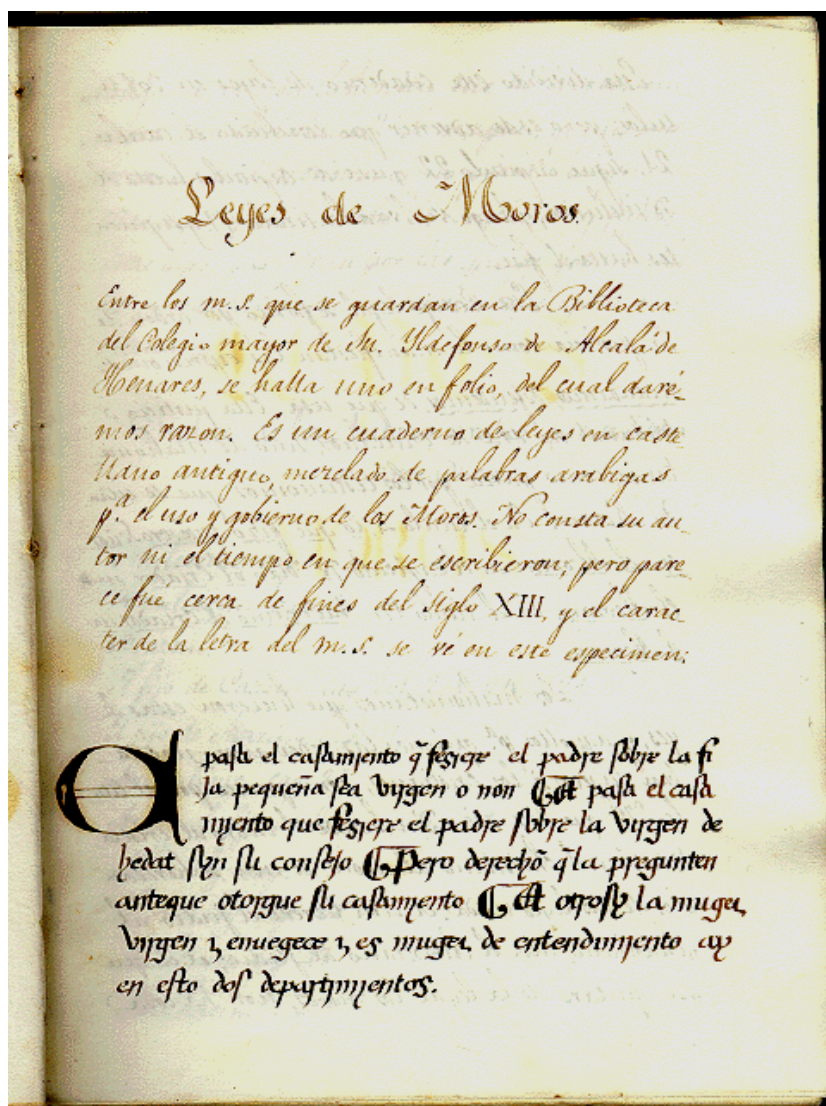 Leyes de Moros.
Entre los m.s. que se guardan en la Biblioteca
del Colegio mayor de Sn. Yldefonso de Alcalá de
Henares, se halla uno en folio, del cual daré-
mos razon. Es un cuaderno de leyes en caste
llano antiguo, mezclado de palabras arabigas
pa. el uso y gobierno de los Moros. No consta su au-
tor ni el tiempo en que se escribieron; pero pare-
ce fue cerca de fines del siglo XIII, y el carac-
ter de la letra del m.s. se vé en este especimen:
pasa el casamiento q̃ fesiere el padre sobre la fi
ja pequeña sea virgen o non ¶ Et pasa el casa
miento que fesiere el padre sobre la virgen de
hedat syn su consejo ¶ Pero derechõ q̃ la pregunten
anteque otorgue su casamyento ¶ Et otrosy la muger
virgen ⁊ envegece ⁊ es muger de entendimiento ay
en esto dos departymientos.